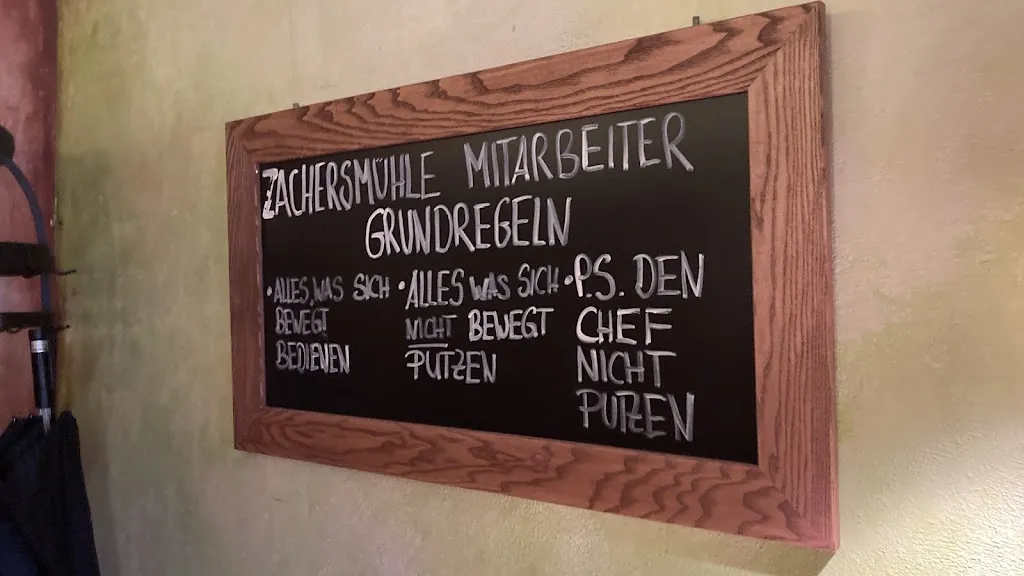 ZACHERSMÜHLE MITARBEITER
GRUNDREGELN
• ALLES, WAS SICH
BEWEGT
BEDIENEN
• ALLES WAS SICH
NICHT BEWEGT
PUTZEN
• P.S. DEN
CHEF
NICHT
PUTZEN